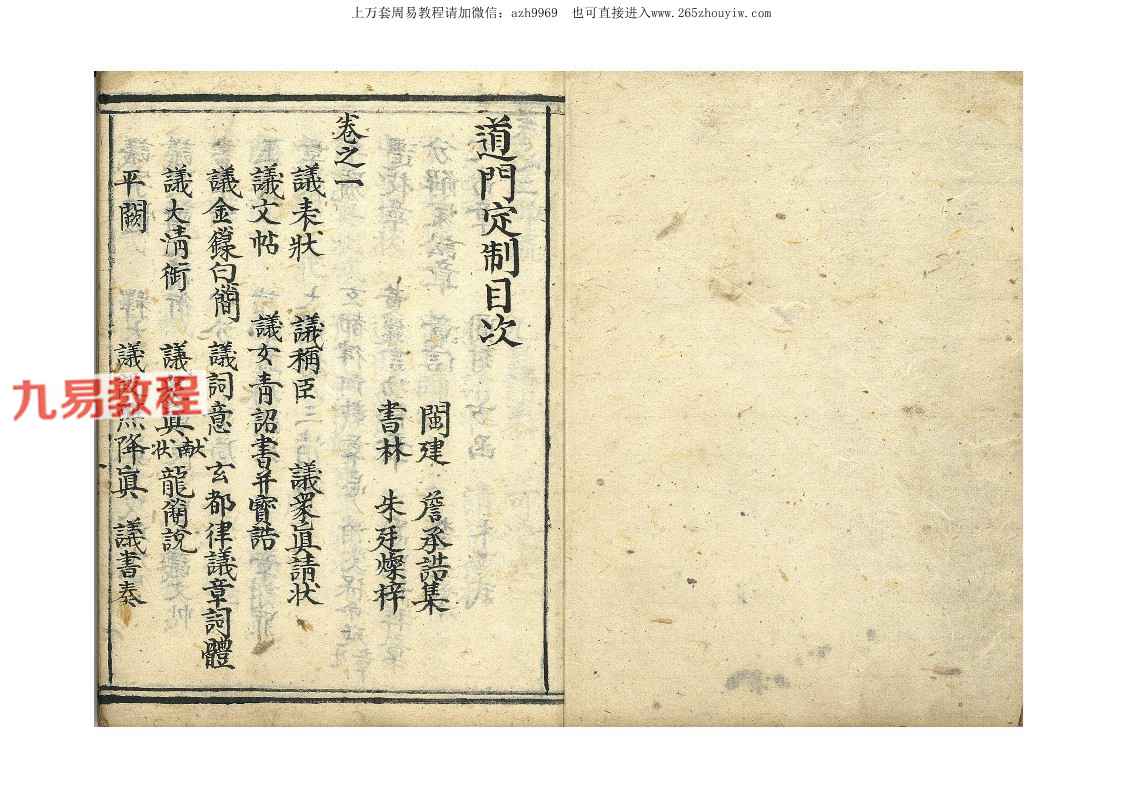 上万套周易教程请加微信：azh9969　也可直接进入www.265zhouyiw.com
道門定制目次
閩建　詹承誥集
書林　朱廷燦梓
卷之一
議表狀　議稱臣　議衆眞請狀
議文帖　議女青詔書并寳誥
議金籙白簡　議詞意　玄都律議章詞體
議大清銜　議　眞　献狀　龍簡說
平闕　議　降眞　議書奏
九易教程